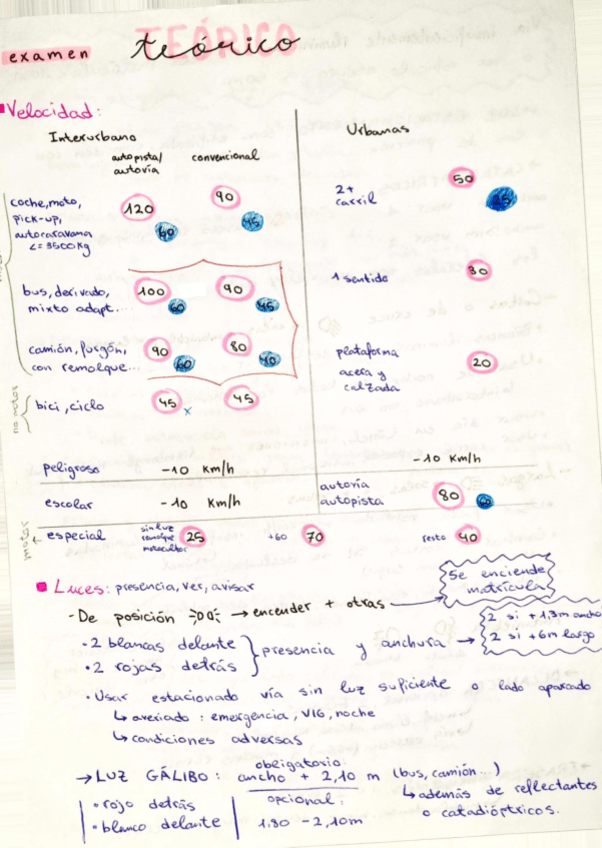 examen TEÓRICO
teórico
Velocidad:
Interurbano
autopista/ convencional
autovía
coche, moto,
pick-up,
autocaravana
<= 3500kg
120 90
60 45
bus, derivado,
mixto adapt...
100 90
60 45
camión, furgón,
con remolque...
90 80
60 40
no motor
bici, ciclo
45 x 45
peligroso -10 km/h
escolar -10 km/h
Urbanas
2+
carril
50
25
1 sentido 30
plataforma
acera y
calzada
20
-10 km/h
autovía
autopista
80
motor
especial sin luz
remolque
motocultor
25 +60 70 resto 40
Luces: presencia, ver, avisar
Se enciende
matrícula
- De posición → encender + otras
· 2 blancas delante
· 2 rojas detrás
presencia y anchura →
2 si + 1,3m ancho
2 si +6m largo
· Usar estacionado vía sin luz suficiente o lado aparcado
↳ averiado: emergencia, V16, noche
↳ condiciones adversas
→ LUZ GÁLIBO: obligatorio:
ancho + 2,10 m (bus, camión...)
opcional:
1,80 - 2,10m
· rojo detrás
· blanco delante
↳ además de reflectantes
o catadióptricos.